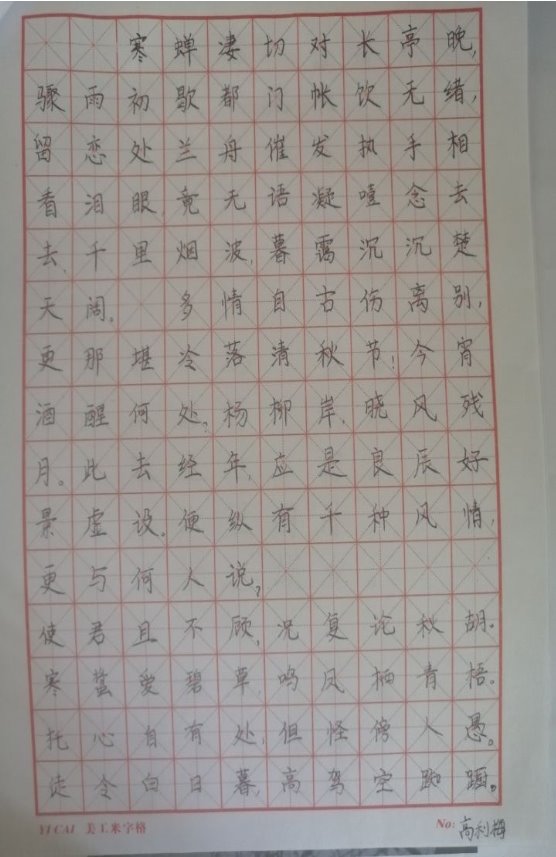 寒蝉凄切对长亭晚,
骤雨初歇都门帐饮无绪,
留恋处兰舟催发执手相
看泪眼,竟无语凝噎念去
去,千里烟波,暮霭沉沉楚
天阔。 多情自古伤离别,
更那堪冷落清秋节!今宵
酒醒何处?杨柳岸,晓风残
月。此去经年,应是良辰好
景虚设。便纵有千种风情,
更与何人说?
使君且不顾,况复论秋胡。
寒蛩爱碧草,鸣凤栖青梧。
托心自有处,但怪傍人愚。
徒令白日暮,高驾空踟蹰。
YI CAI 美工米字格
No: 高利梅